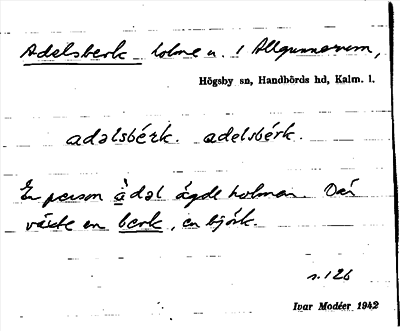 Adelsberk holme n. i Allgunnarum,
Högsby sn, Handbörds hd, Kalm. l.
adəlsbérk. adelsbérk.
En person àdəl ägde holmen. Där
växte en berk, en björk.
s. 126
Ivar Modéer 1942